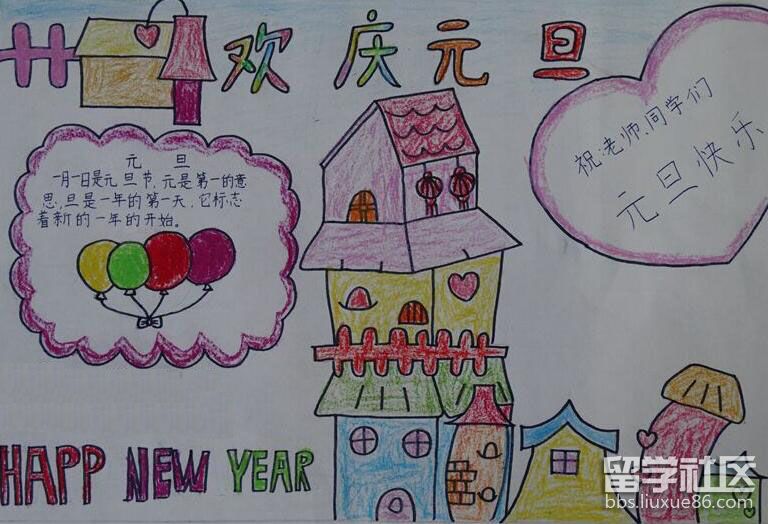 欢庆元旦
祝:老师、同学们
元旦快乐
元 旦
一月一日是元旦节,元是第一的意
思,旦是一年的第一天,它标志
着新的一年的开始。
HAPP NEW YEAR
留学社区
bbs.liuxue86.com